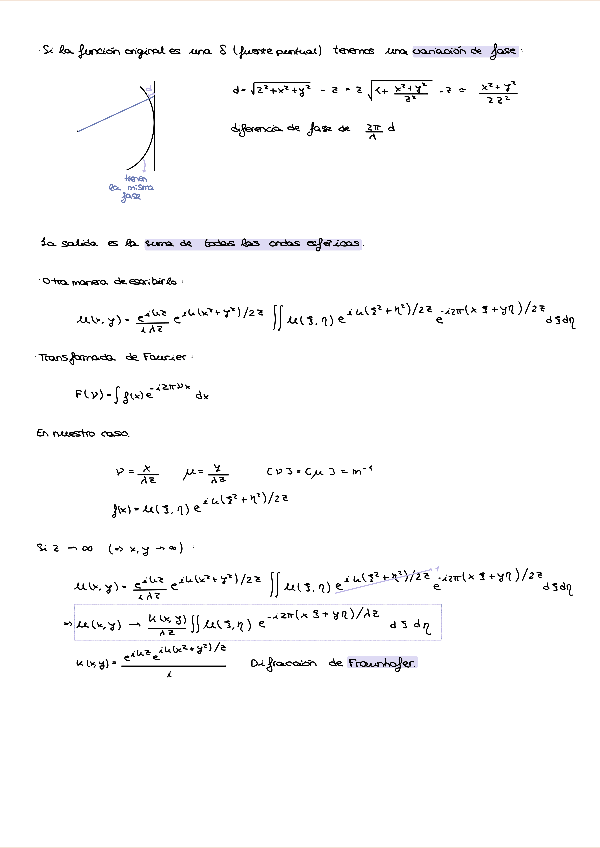 · Si la función original es una δ (fuente puntual) tenemos una variación de fase.
d = √(z²+x²+y²) - z = z √(1+ (x²+y²)/z²) - z ≈ (x²+y²)/2z²
diferencia de fase de 2π/λ d
d
tienen
la misma
fase
La salida es la suma de todas las ondas esféricas.
· Otra manera de escribirlo:
u(x, y) = e^{ikz}/iλz e^{ik(x²+y²)/2z} ∬ u(ξ, η) e^{ik(ξ²+η²)/2z} e^{-i2π(xξ+yη)/2z} dξdη
· Transformada de Fourier:
F(ν) = ∫ f(x) e^{-i2πνx} dx
En nuestro caso:
ν = x/λz   μ = y/λz   [ν] = [μ] = m⁻¹
f(x) = u(ξ, η) e^{ik(ξ²+η²)/2z}
Si z → ∞ (⇒ x, y → ∞) :
u(x, y) = e^{ikz}/iλz e^{ik(x²+y²)/2z} ∬ u(ξ, η) e^{ik(ξ²+η²)/2z} → 1 e^{-i2π(xξ+yη)/2z} dξdη
⇒ u(x, y) → k(x, y)/λz ∬ u(ξ, η) e^{-i2π(xξ+yη)/λz} dξ dη
k(x, y) = e^{ikz} e^{ik(x²+y²)/z}/i   Difracción de Fraunhofer.